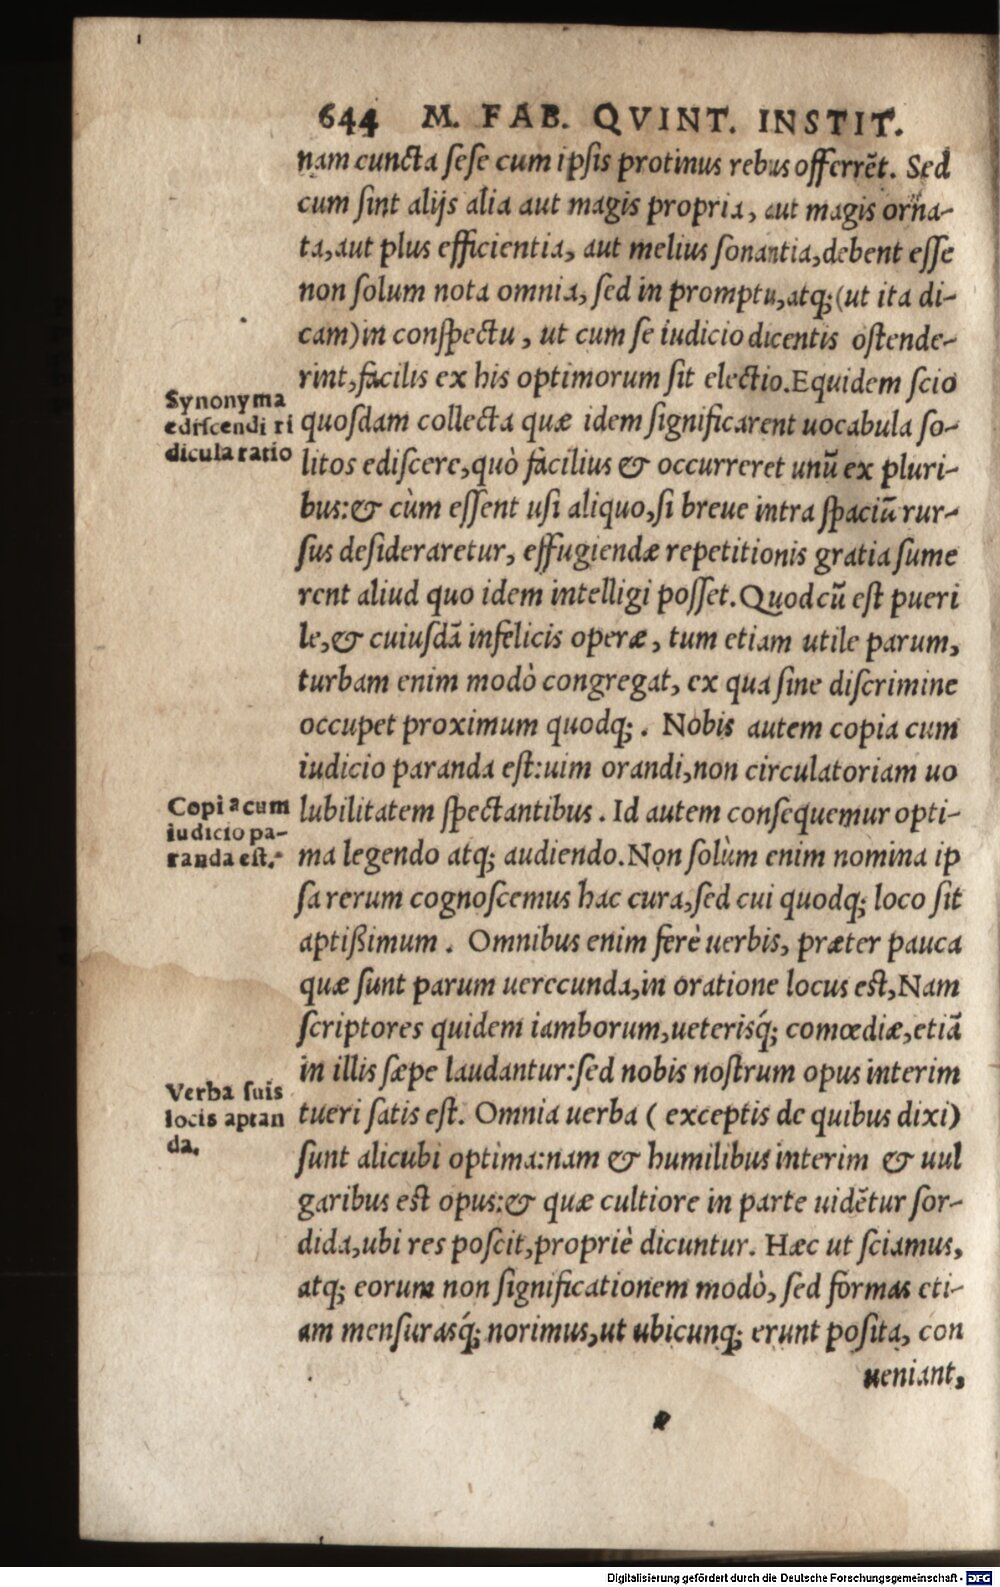 644 M. FAB. QVINT. INSTIT.
nam cuncta ſeſe cum ipſis protinus rebus offerrẽt. Sed
cum ſint alijs alia aut magis propria, aut magis orna-
ta, aut plus efficientia, aut melius ſonantia, debent eſſe
non ſolum nota omnia, ſed in promptu, atq; (ut ita di-
cam) in conſpectu, ut cum ſe iudicio dicentis oſtende-
rint, facilis ex his optimorum ſit electio. Equidem ſcio
Synonyma
ediſcendi ri
dicula ratio
quoſdam collecta quæ idem ſignificarent uocabula ſo-
litos ediſcere, quò facilius & occurreret unũ ex pluri-
bus: & cùm eſſent uſi aliquo, ſi breue intra ſpaciũ rur-
ſus deſideraretur, effugiendæ repetitionis gratia ſume
rent aliud quo idem intelligi poſſet. Quod cũ eſt pueri
le, & cuiuſdã infelicis operæ, tum etiam utile parum,
turbam enim modò congregat, ex qua ſine diſcrimine
occupet proximum quodq;. Nobis autem copia cum
iudicio paranda eſt: uim orandi, non circulatoriam uo
Copia cum
iudicio pa-
randa eſt.
lubilitatem ſpectantibus. Id autem conſequemur opti-
ma legendo atq; audiendo. Non ſolùm enim nomina ip
ſa rerum cognoſcemus hac cura, ſed cui quodq; loco ſit
aptißimum. Omnibus enim ferè uerbis, præter pauca
quæ ſunt parum uerecunda, in oratione locus eſt, Nam
ſcriptores quidem iamborum, ueterisq́; comœdiæ, etiã
in illis ſæpe laudantur: ſed nobis noſtrum opus interim
Verba ſuis
locis aptan
da.
tueri ſatis eſt. Omnia uerba ( exceptis de quibus dixi)
ſunt alicubi optima: nam & humilibus interim & uul
garibus eſt opus: & quæ cultiore in parte uidẽtur ſor-
dida, ubi res poſcit, propriè dicuntur. Hæc ut ſciamus,
atq; eorum non ſignificationem modò, ſed formas eti-
am menſurasq́; norimus, ut ubicunq; erunt poſita, con
ueniant,
Digitalisierung gefördert durch die Deutsche Forschungsgemeinschaft - DFG